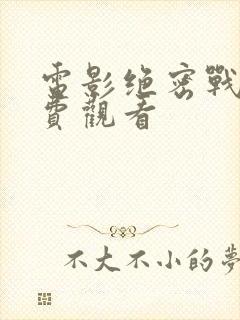 電影绝密戰
費觀看
不大不小的夢